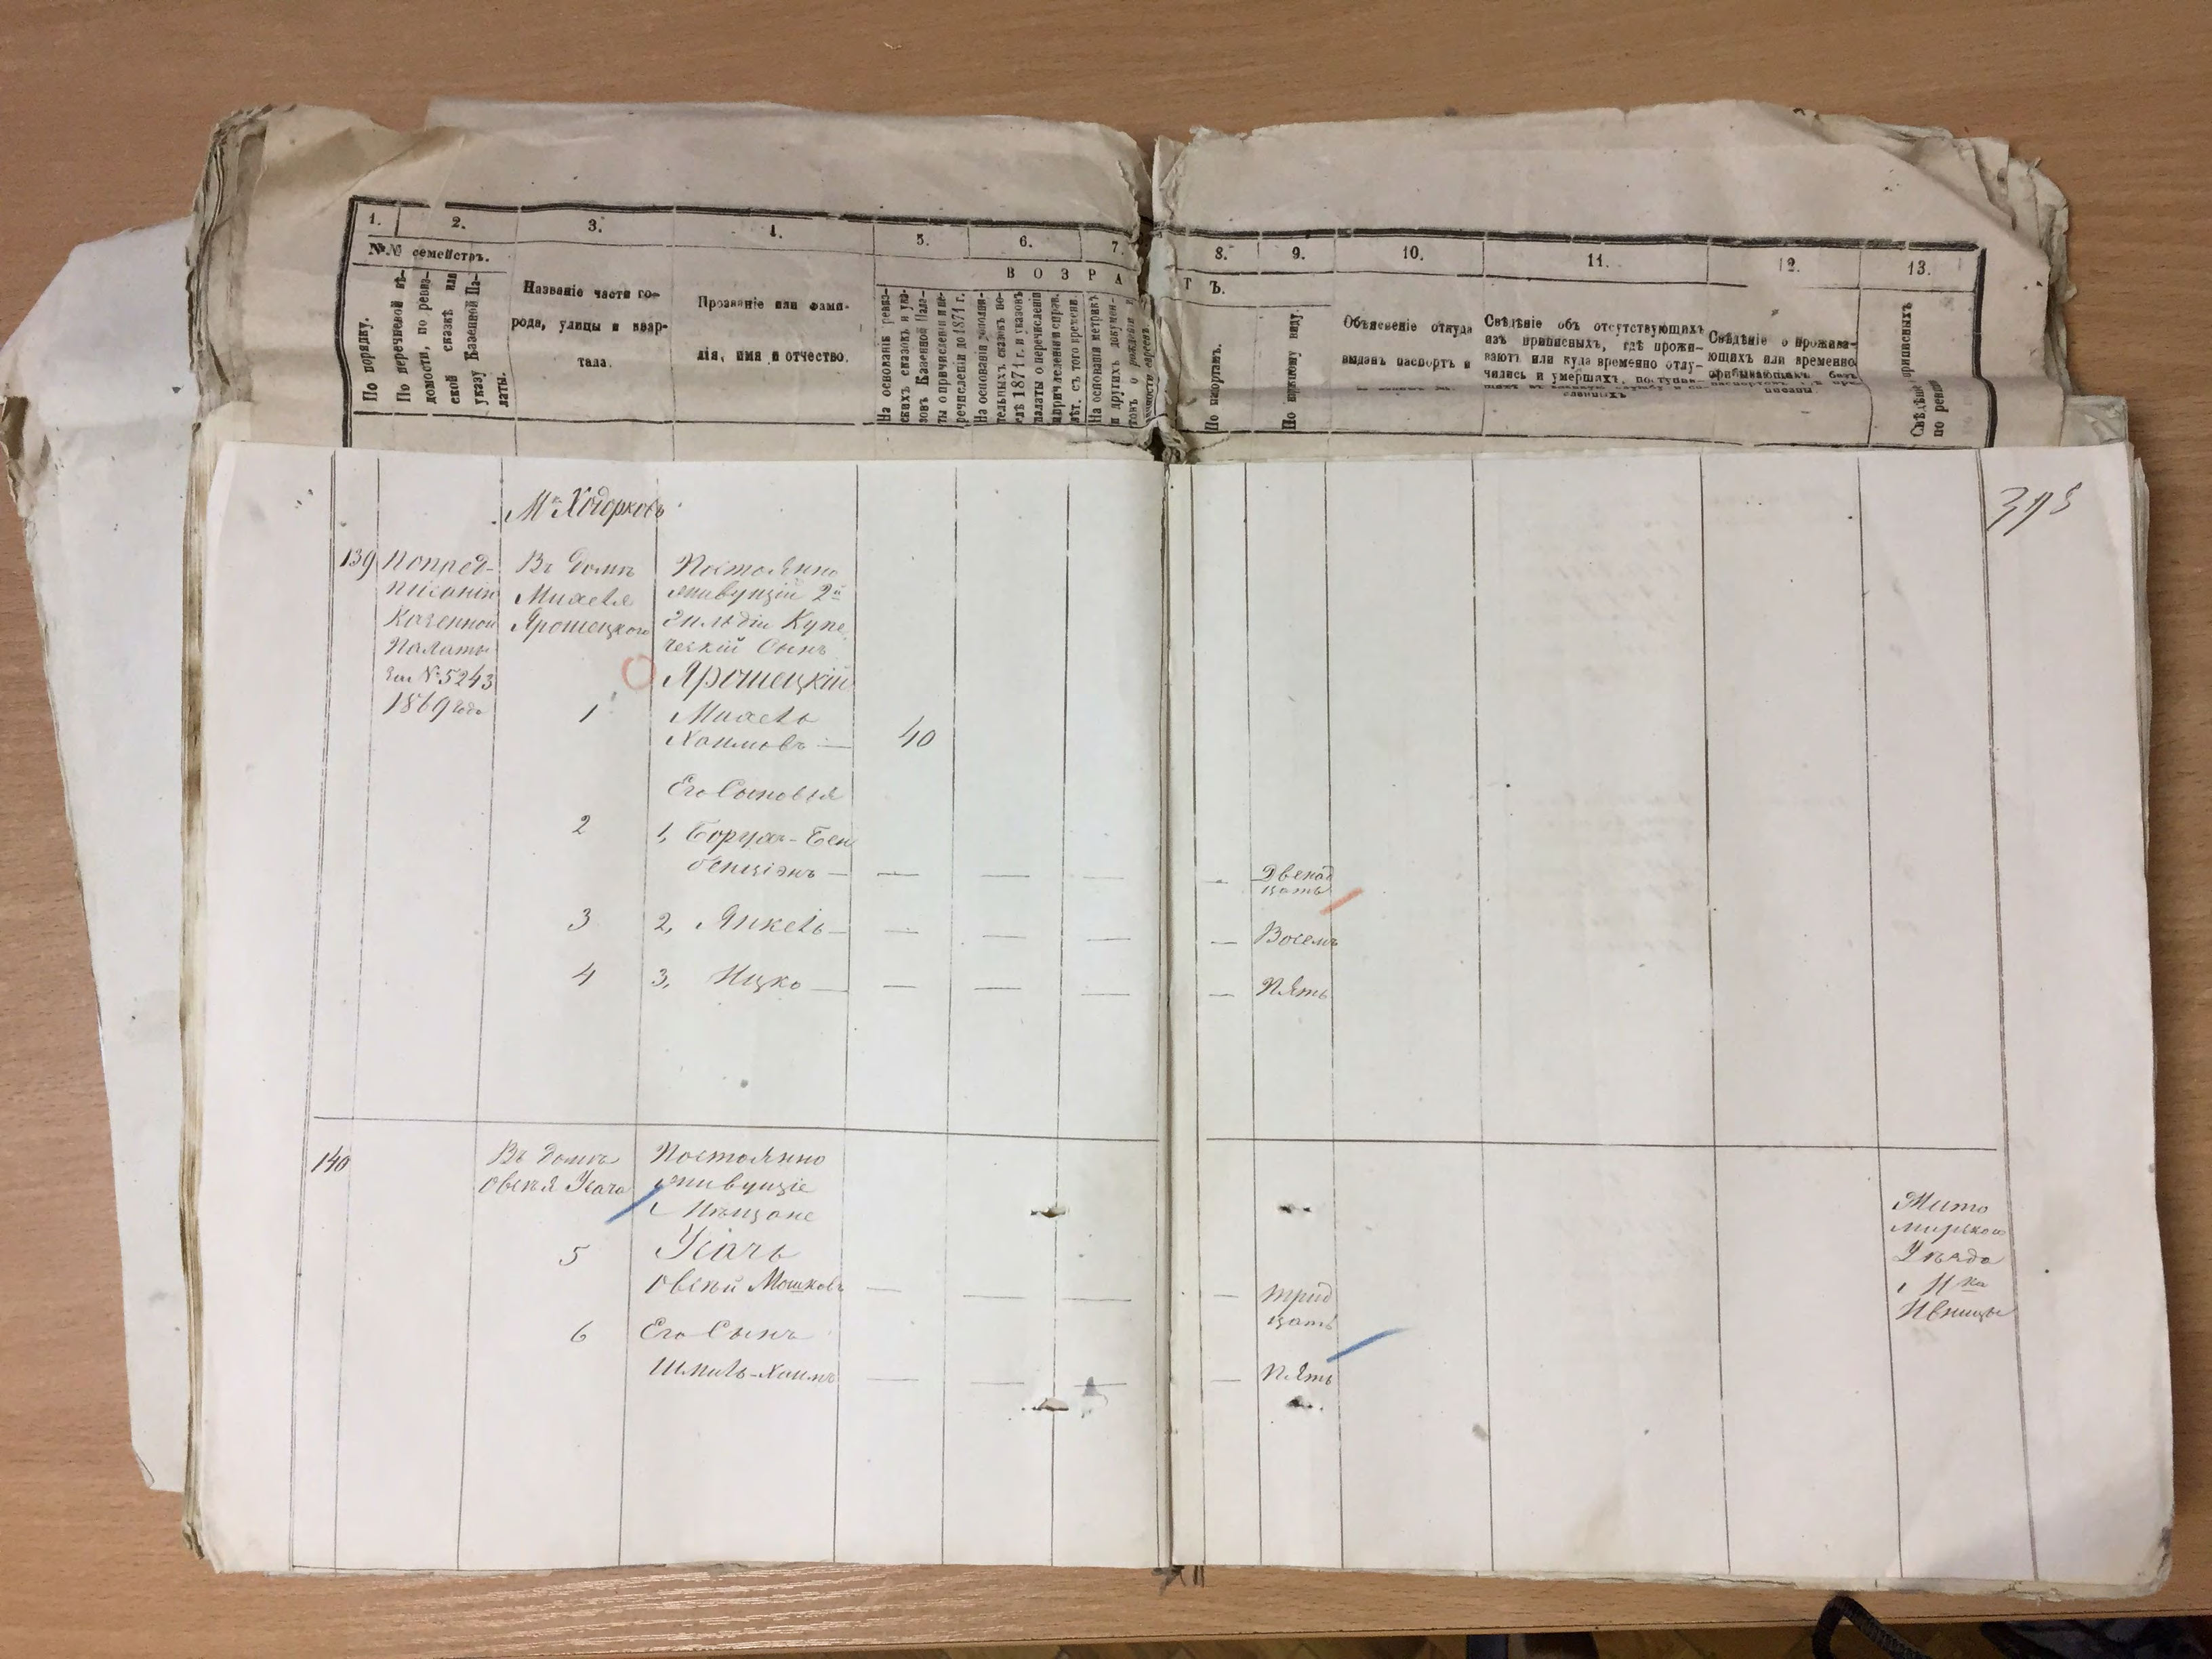 1. 2. 3. 4. 5. 6. 7. 8. 9. 10. 11. 12. 13.
№№ семействъ.
По порядку.
По перечневой вѣ-
домости, по ревиз-
ской сказкѣ или
указу Казенной Па-
латы.
Названіе части го-
рода, улицы и квар-
тала.
Прозваніе или фами-
лія, имя и отчество.
В О З Р А
Т Ъ.
На основаніи ревиз-
скихъ сказокъ и ука-
зовъ Казенной Пала-
ты о причисленіи и пе-
речисленіи до 1871 г.
На основаніи дополни-
тельныхъ сказокъ по-
слѣ 1871 г. и указовъ
палаты о перечисленіи
лѣт. съ того времени.
На основаніи метрикъ
и другихъ докумен-
товъ о рожденіи и
По паспортамъ.
По наружному виду.
Объясненіе откуда
выданъ паспортъ и
Свѣдѣніе объ отсутствующихъ
изъ приписныхъ, гдѣ прожи-
ваютъ или куда временно отлу-
чились и умершихъ, поступив-
Свѣдѣніе о прожива-
ющихъ или временно
прибывающихъ безъ
приписныхъ
по ревиз
Мко Ходорковъ
139
По пред-
писанію
Казенной
Палаты
за № 5243
1869 года
Въ домѣ
Михеля
Ярошецкого
Постоянно
живущій 2й
гильдіи Купе
ческій Сынъ
Ярошецкій
1 Михель
Хаимовъ — 40
Его Сыновья
2 1, Борухъ-Бен
бенціонъ — — — — — Двенад
цать
3 2, Янкель — — — — — Восемь
4 3, Ицко — — — — — Пять
140
Въ домѣ
Овсѣя Усача
Постоянно
живущіе
Мѣщане
5 Усачь
Овсѣй Мошковъ — — — — трид
цать
6 Его Сынъ
Шмиль-Хаимъ — — — — Пять
Жито
мирскаго
Уѣзда
Мка
Ивницы